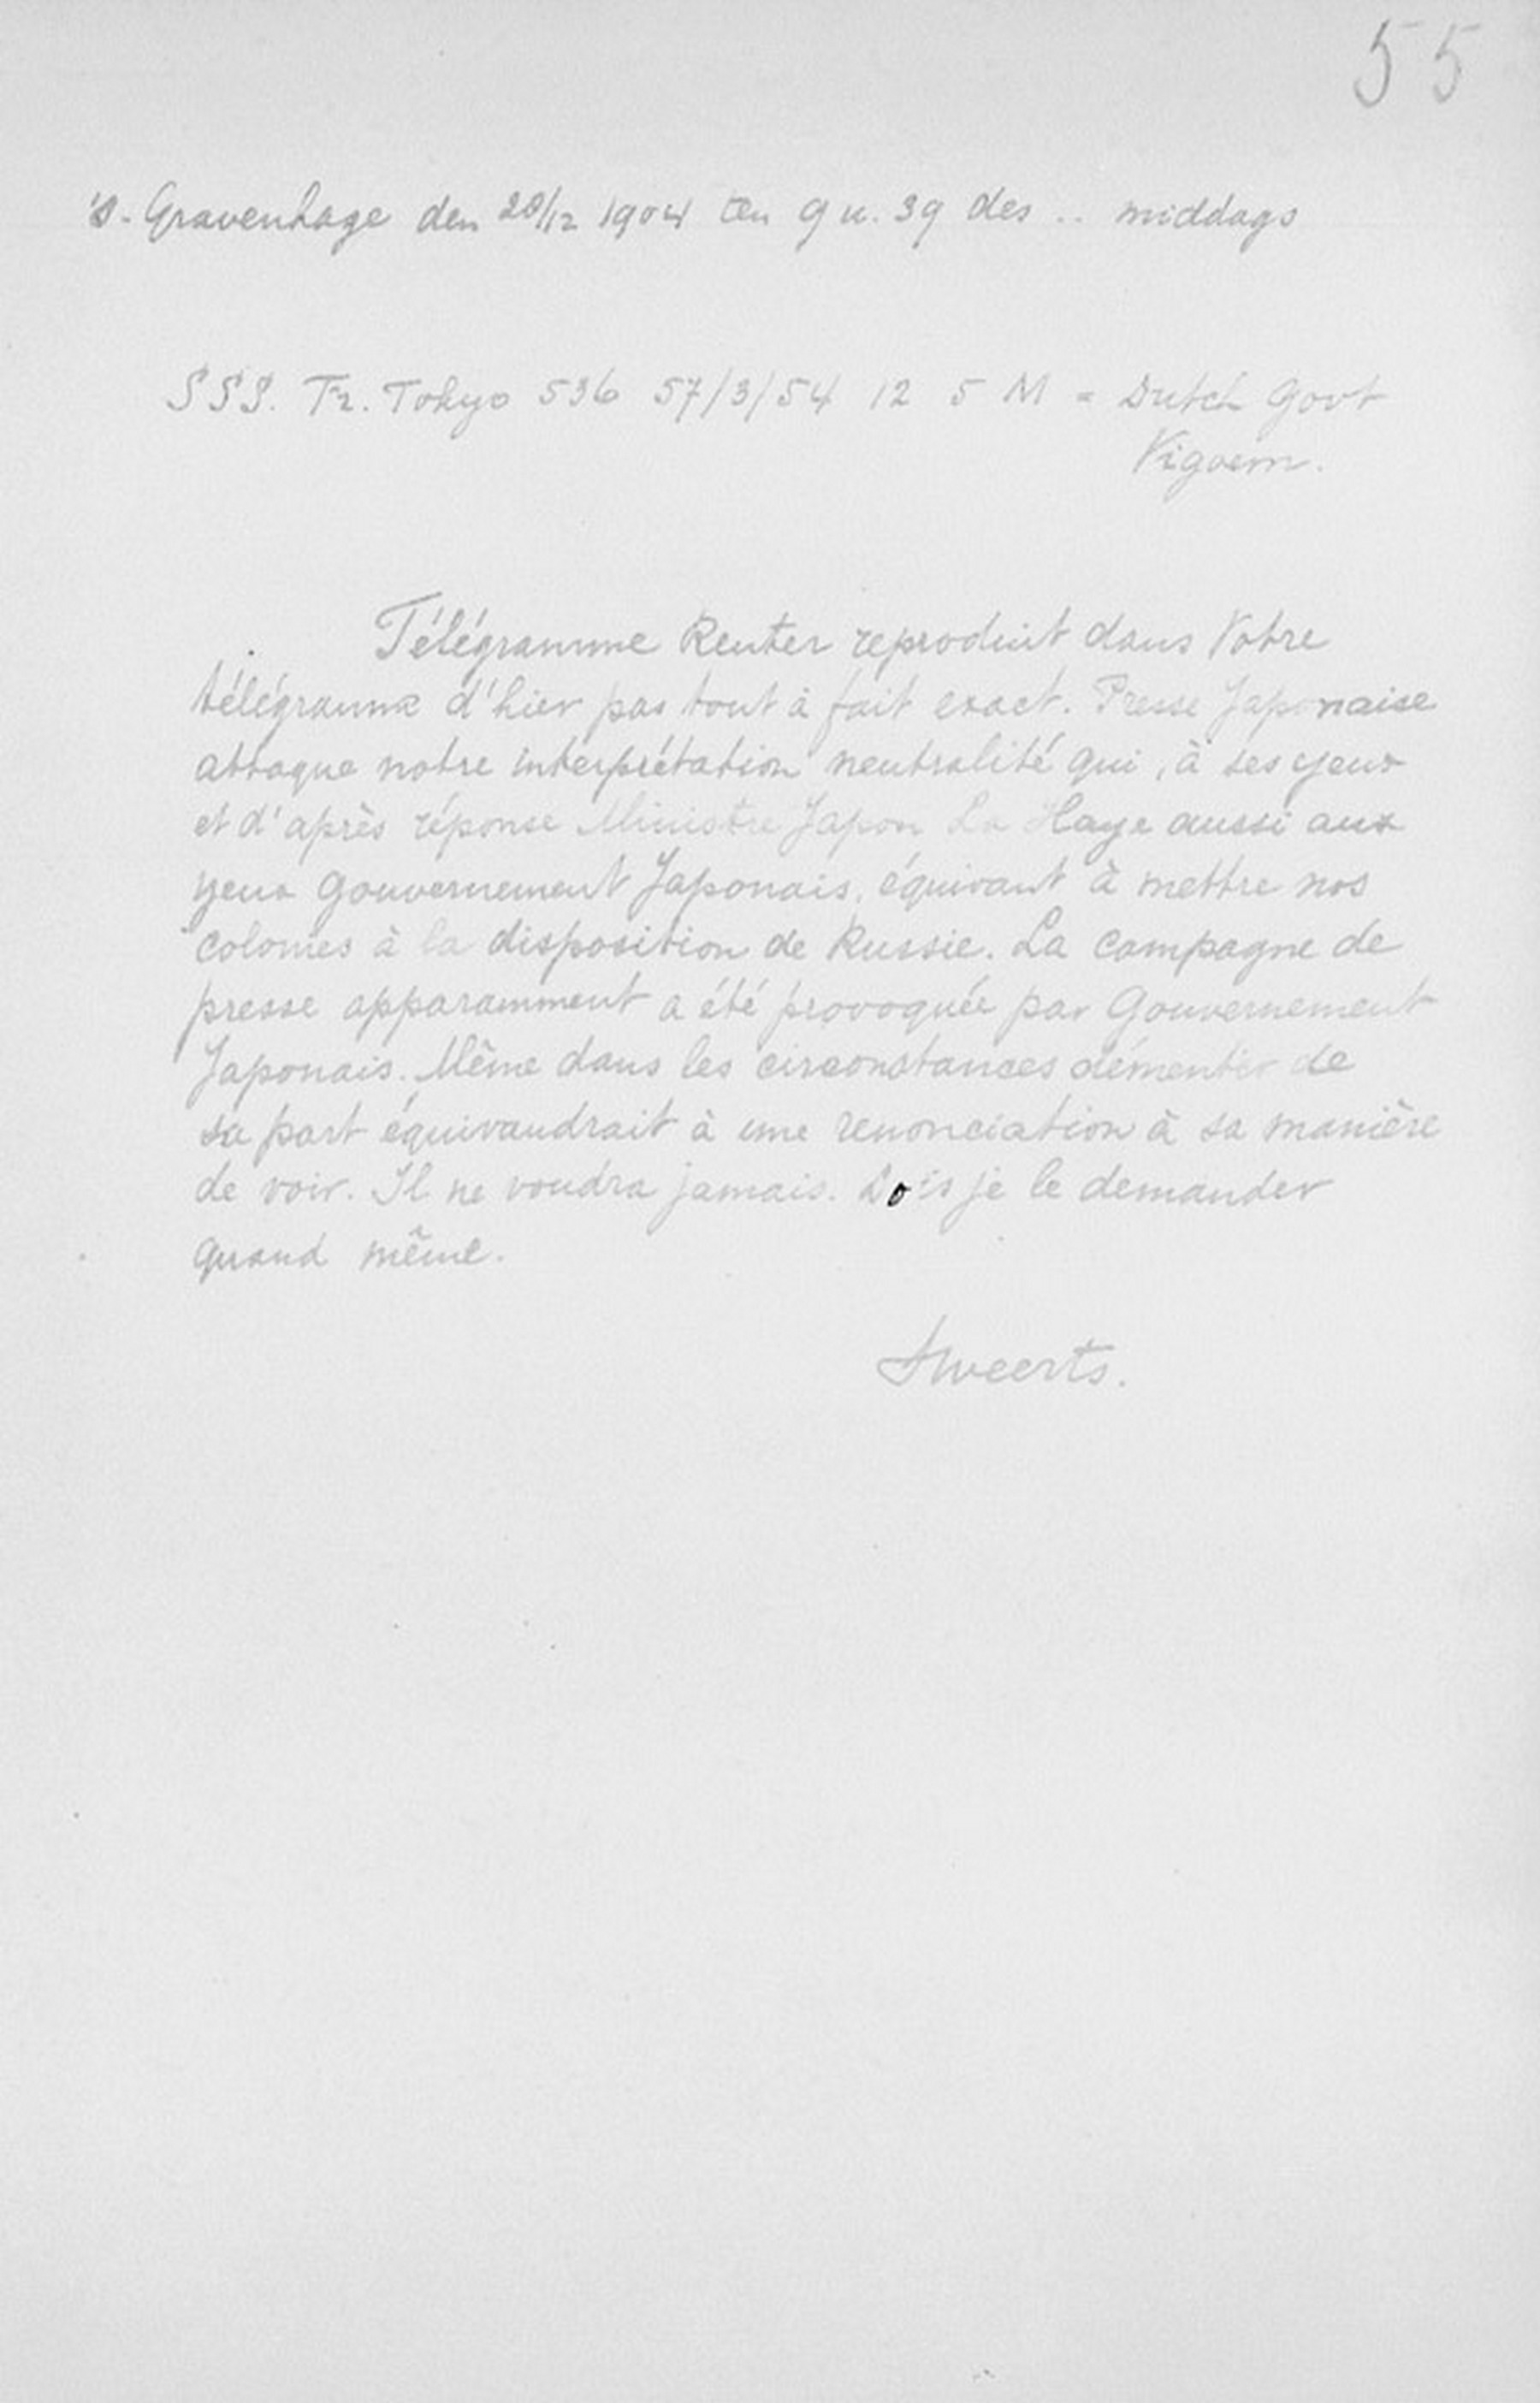 55
's-Gravenhage den 28/12 1904 ten 9 u. 39 des .. middags
SSS. Tr. Tokyo 536 57/3/54 12 5 M = Dutch Govt
Vigoem.
Télégramme Reuter reproduit dans Votre
télégramme d'hier pas tout à fait exact. Presse Japonaise
attaque notre interprétation neutralité qui, à ses yeux
et d'après réponse Ministre Japon La Haye aussi aux
yeux Gouvernement Japonais, équivaut à mettre nos
colonies à la disposition de Russie. La campagne de
presse apparamment a été provoquée par Gouvernement
Japonais. Même dans les circonstances démentir de
sa part équivaudrait à une renonciation à sa manière
de voir. Il ne voudra jamais. Dois je le demander
quand même.
Sweerts.